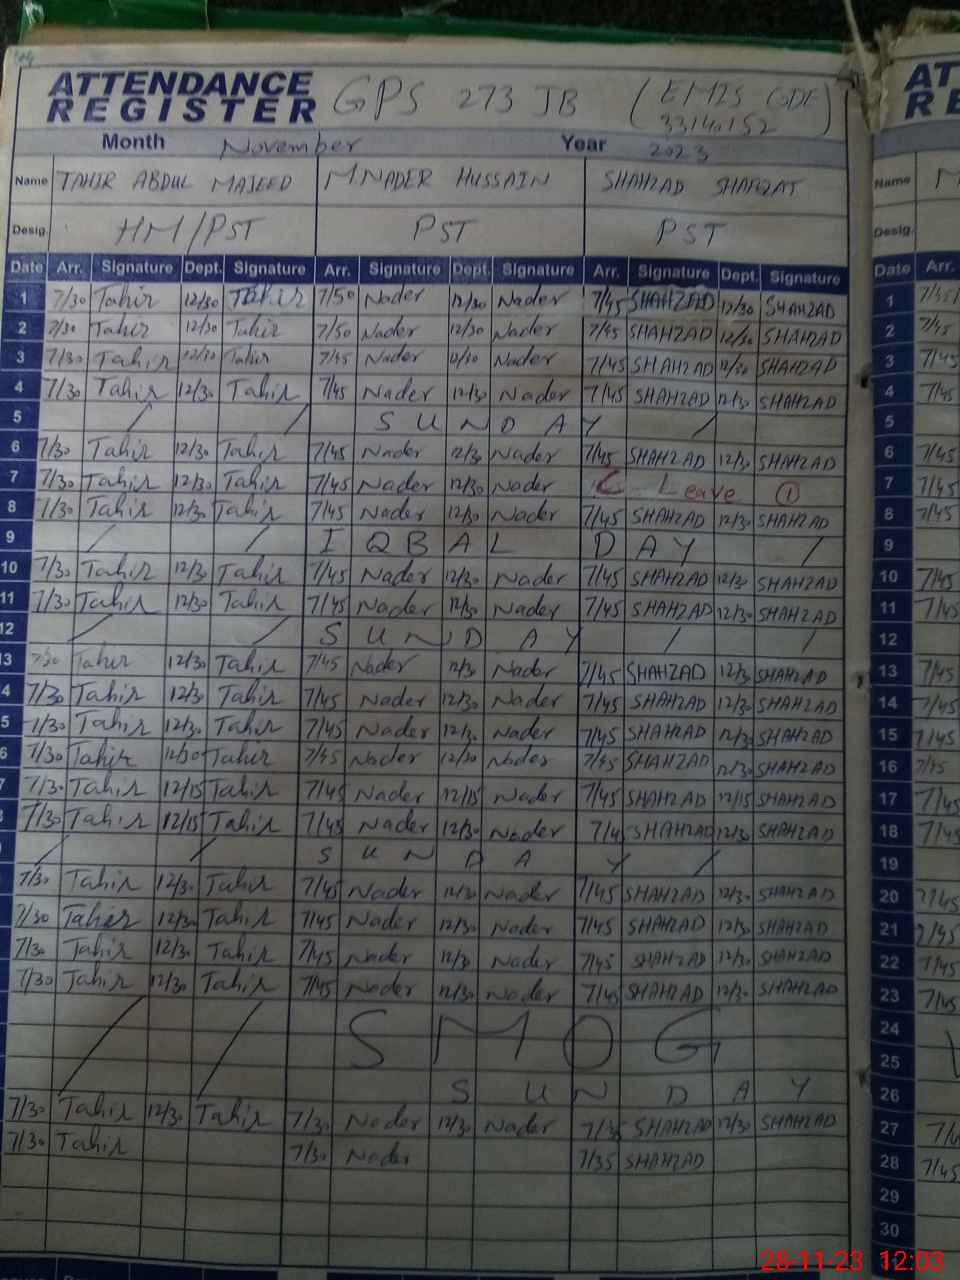 ATTENDANCE REGISTER GPS 273 JB (EMIS CODE 33140152)
Month November Year 2023
Name TAHIR ABDUL MAJEED M NADER HUSSAIN SHAHZAD SHAFQAT
Desig. HM/PST PST PST
Date Arr. Signature Dept. Signature Arr. Signature Dept. Signature Arr. Signature Dept. Signature
1 7/30 Tahir 12/30 Tahir 7/50 Nader 12/30 Nader 7/45 SHAHZAD 12/30 SHAHZAD
2 7/30 Tahir 12/30 Tahir 7/50 Nader 12/30 Nader 7/45 SHAHZAD 12/30 SHAHZAD
3 7/30 Tahir 12/30 Tahir 7/45 Nader 12/30 Nader 7/45 SHAHZAD 12/30 SHAHZAD
4 7/30 Tahir 12/30 Tahir 7/45 Nader 12/30 Nader 7/45 SHAHZAD 12/30 SHAHZAD
5 / / SUNDAY /
6 7/30 Tahir 12/30 Tahir 7/45 Nader 12/30 Nader 7/45 SHAHZAD 12/30 SHAHZAD
7 7/30 Tahir 12/30 Tahir 7/45 Nader 12/30 Nader C Leave 1
8 7/30 Tahir 12/30 Tahir 7/45 Nader 12/30 Nader 7/45 SHAHZAD 12/30 SHAHZAD
9 / / IQBAL DAY /
10 7/30 Tahir 12/30 Tahir 7/45 Nader 12/30 Nader 7/45 SHAHZAD 12/30 SHAHZAD
11 7/30 Tahir 12/30 Tahir 7/45 Nader 12/30 Nader 7/45 SHAHZAD 12/30 SHAHZAD
12 / / SUNDAY / /
13 7/30 Tahir 12/30 Tahir 7/45 Nader 12/30 Nader 7/45 SHAHZAD 12/30 SHAHZAD
14 7/30 Tahir 12/30 Tahir 7/45 Nader 12/30 Nader 7/45 SHAHZAD 12/30 SHAHZAD
15 7/30 Tahir 12/30 Tahir 7/45 Nader 12/30 Nader 7/45 SHAHZAD 12/30 SHAHZAD
16 7/30 Tahir 12/30 Tahir 7/45 Nader 12/30 Nader 7/45 SHAHZAD 12/30 SHAHZAD
17 7/30 Tahir 12/15 Tahir 7/45 Nader 12/15 Nader 7/45 SHAHZAD 12/15 SHAHZAD
18 7/30 Tahir 12/15 Tahir 7/45 Nader 12/30 Nader 7/45 SHAHZAD 12/30 SHAHZAD
19 / / SUNDAY /
20 7/30 Tahir 12/30 Tahir 7/45 Nader 12/30 Nader 7/45 SHAHZAD 12/30 SHAHZAD
21 7/30 Tahir 12/30 Tahir 7/45 Nader 12/30 Nader 7/45 SHAHZAD 12/30 SHAHZAD
22 7/30 Tahir 12/30 Tahir 7/45 Nader 12/30 Nader 7/45 SHAHZAD 12/30 SHAHZAD
23 7/30 Tahir 12/30 Tahir 7/45 Nader 12/30 Nader 7/45 SHAHZAD 12/30 SHAHZAD
24 / / SMOG
25
26 SUNDAY
27 7/30 Tahir 12/30 Tahir 7/30 Nader 12/30 Nader SHAHZAD 12/30 SHAHZAD
28 7/30 Tahir 7/30 Nader 7/35 SHAHZAD
29
30
28-11-23 12:03